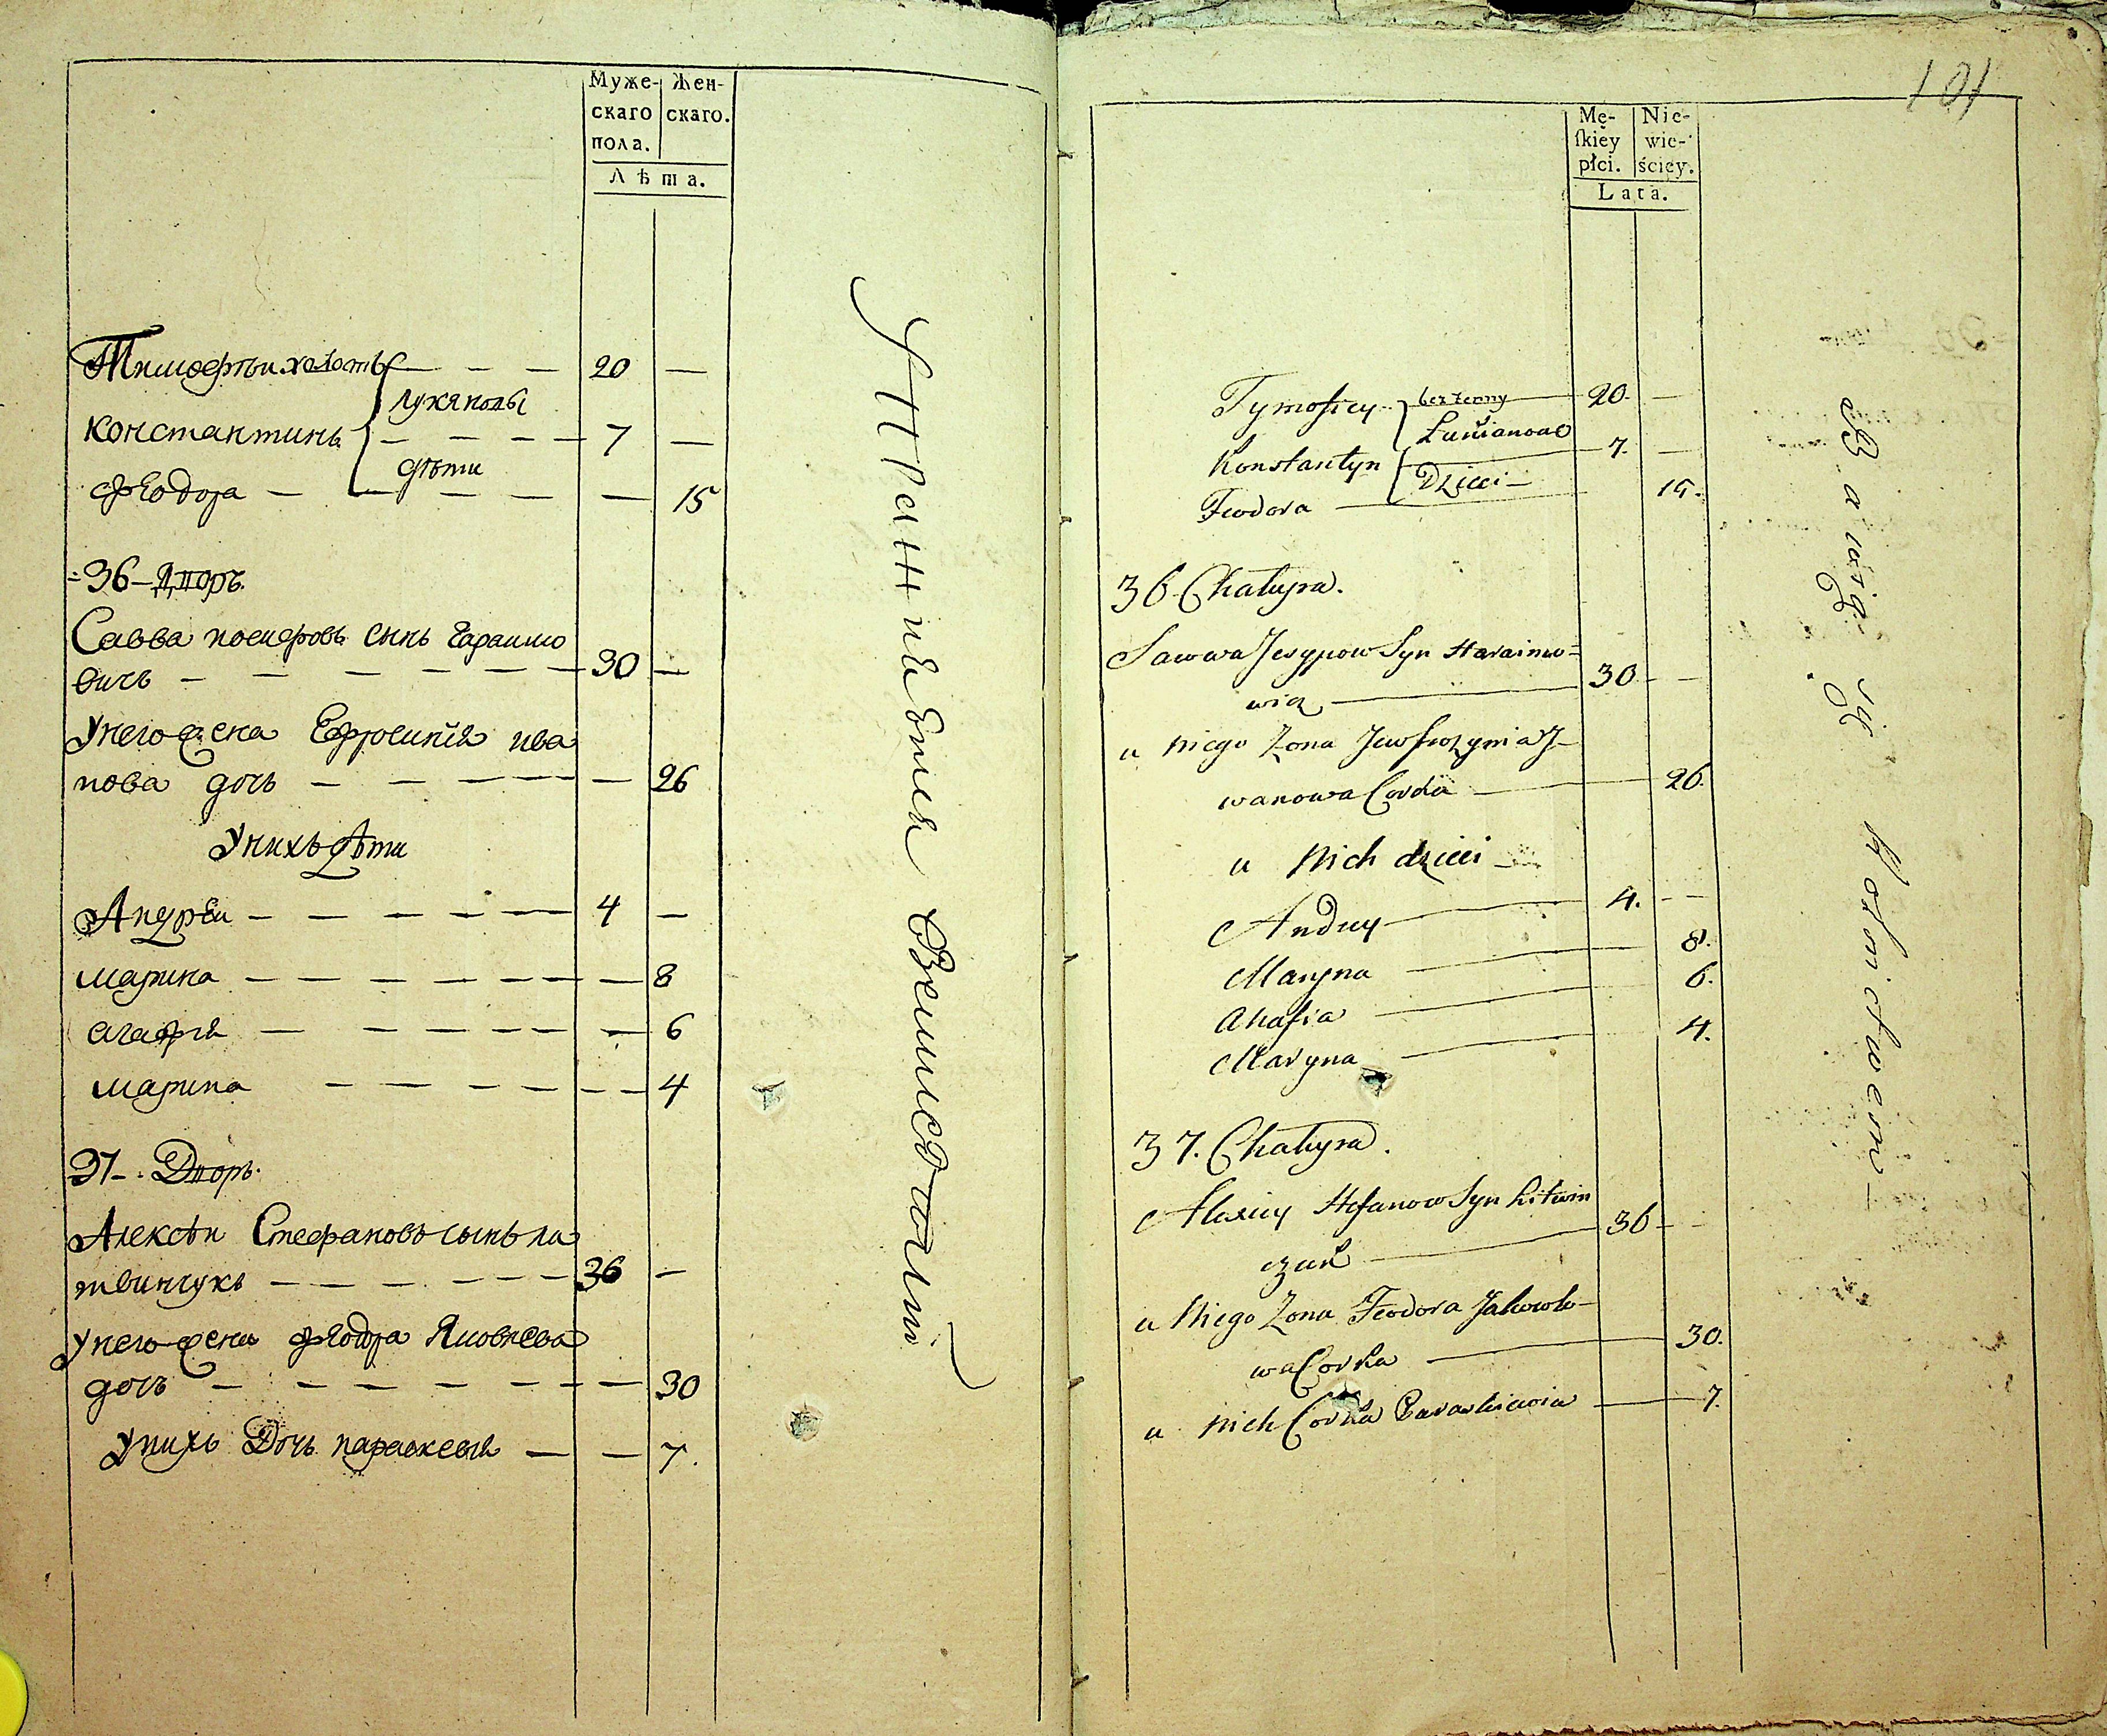 Муже-
скаго
пола.
Жен-
скаго.
Лѣта.
Тимофѣи холостъ — — — 20 —
Лукяновы
Константинъ — — — — 7 —
дѣти
Феодора — — — — — — 15
36 — Дворъ.
Савва иосифовъ сынъ Гараимо
вичъ — — — — — — 30 —
Унего жена Ефросиния ива
нова дочь — — — — — 26
Унихъ дѣти
Андрѣи — — — — — — 4 —
марина — — — — — — — 8
агафия — — — — — — — 6
марина — — — — — — — 4
37 — Дворъ.
Алексѣи Стефановъ сынъ ли
твинчукъ — — — — — — — 36 —
унего жена феодора Яковлева
дочь — — — — — — — 30
Унихъ Дочь параскевия — — 7.
Упражняются Вземледѣлии
101
Mę-
ſkiey
płci.
Nie-
wie-
ściey.
Lata.
Tymofiey bez żenny 20. —
Łukianowe
Konstantyn 7. —
Dzieci —
Feodora 15.
36 Chałupa.
Sawwa Jesypow Syn Haraimo=
wicz 30 —
u Niego Żona Jewfrozynia J-
wanowa Corka 26.
u Nich dzieci —
Andrey 4. —
Maryna 8.
Ahafia 6.
Maryna 4.
37. Chałupa.
Alexiey Stefanow Syn Litwin
czuk 36 —
u Niego Żona Feodora Jakowle-
wa Corka 30.
u Nich Corka Paraskiewia 7.
Bawią się Rolnictwem —